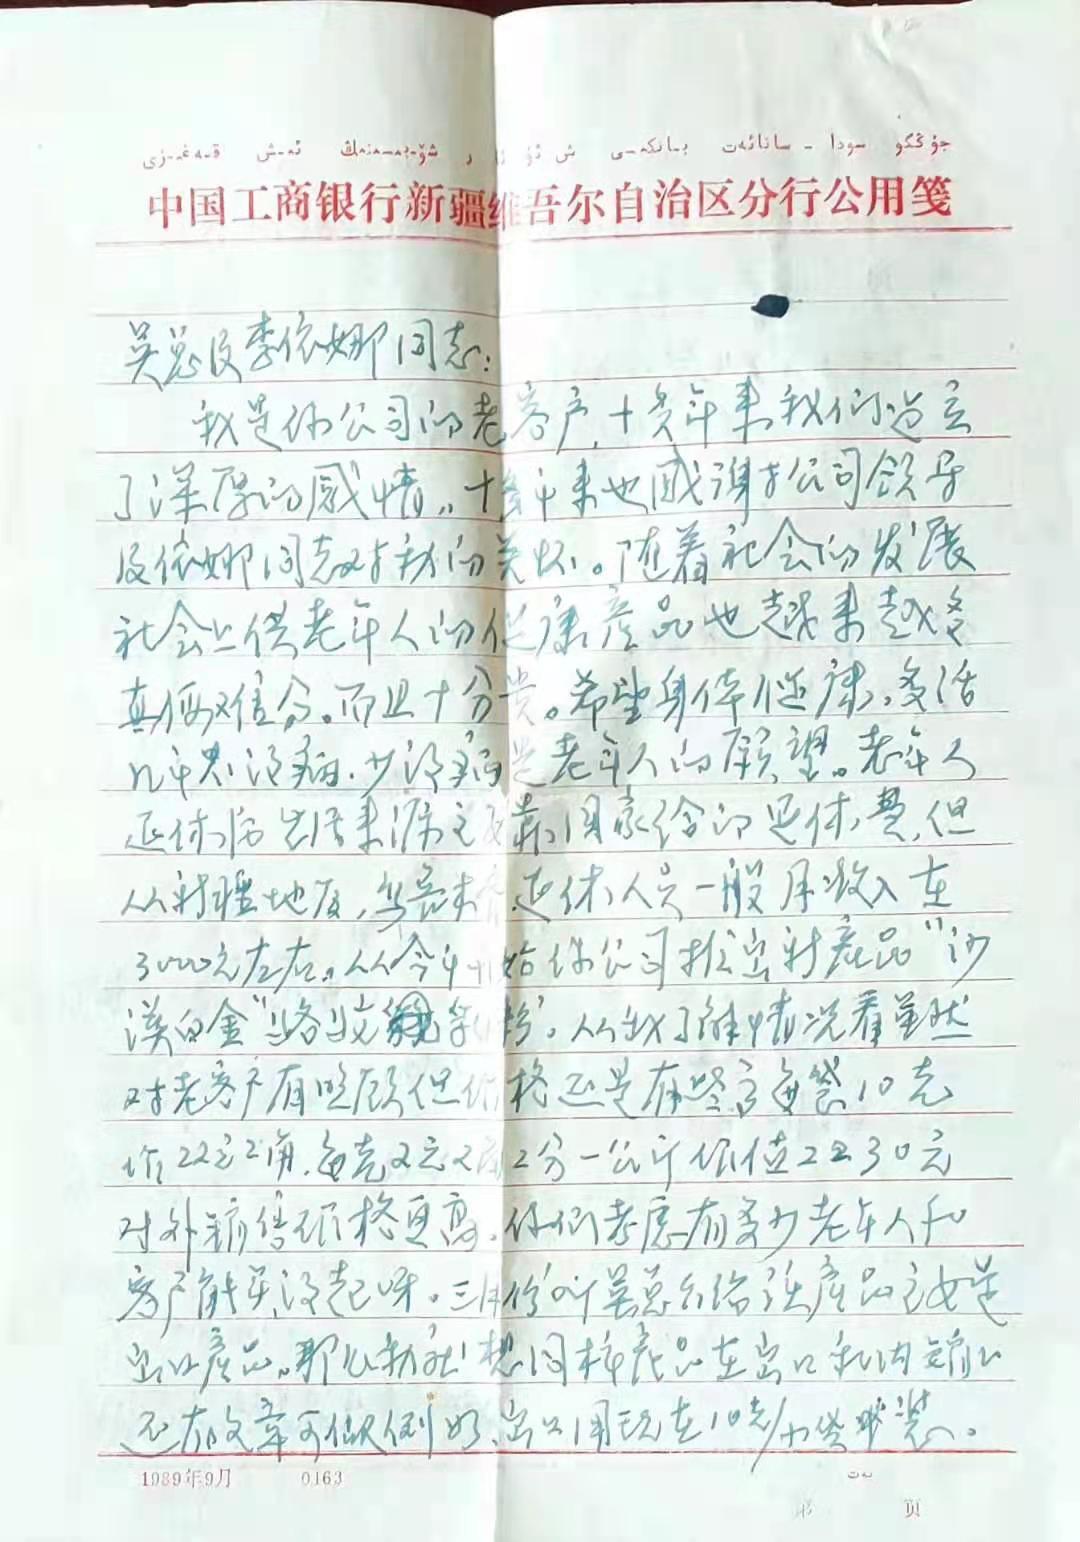 جۇڭگو سودا - سانائەت بانكىسى
中国工商银行新疆维吾尔自治区分行公用笺
吴总及李依娜同志:
我是你公司的老客户,十多年来我们建立
了深厚的感情。十多年来也感谢于公司领导
及依娜同志对我的关怀。随着社会的发展
社会上供老年人的健康产品也越来越多
真假难分。而且十分贵。希望身体健康,多活
几年 没病,少得病是老年人的愿望。老年人
退休后生活来源主要靠国家给的退休费,但
从新疆地区,乌鲁木齐退休人员一般月收入在
3000元左右。从今年开始你公司推出新产品“沙
漠白金”骆驼 乳粉。从我了解情况看虽然
对老客户有照顾但价格还是有些高每袋10克
价22元2角,每克2元2角2分一公斤价值2230元
对外销售价格更高,你们考虑有多少老年人和
客户能买得起呀。三月份听吴总介绍该产品主要是
出口产品。那么我就想同样产品在出口和内销上
还有文章可做例如,出口用现在10克/小袋 装。
1989年9月 0163
第 页